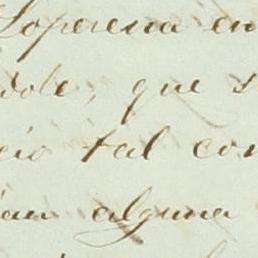 Loperena en
dole, que s
cio tal con
ian alguna